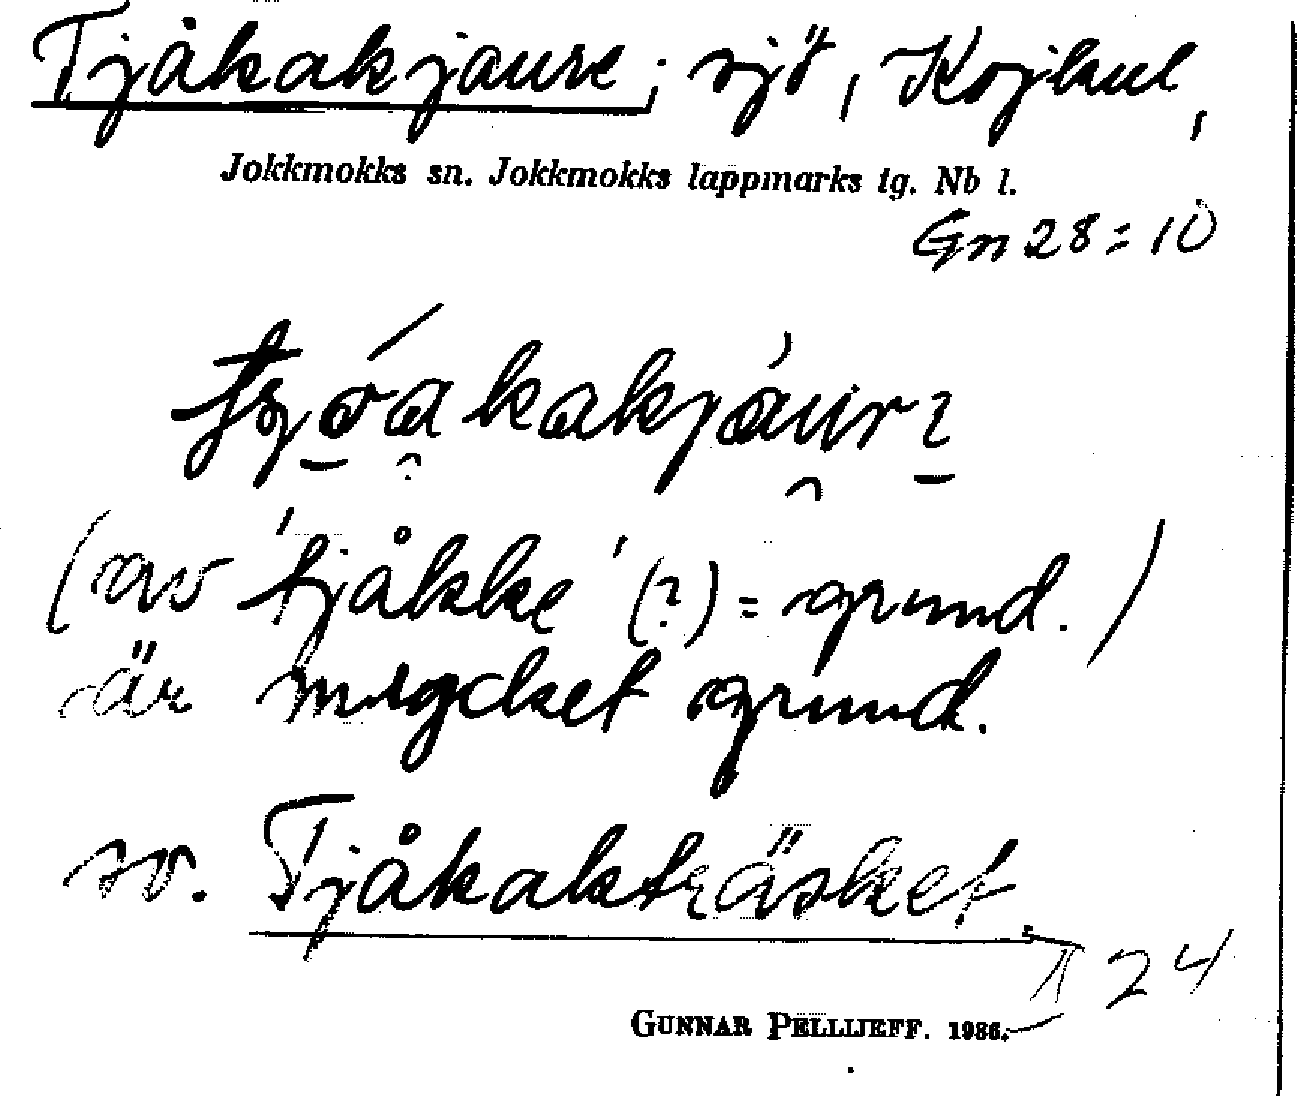 Tjåkakjaure; sjö, Kojkul,
Jokkmokks sn. Jokkmokks lappmarks tg. Nb l.
Gn 28:10
(av 'tjåkke' (?) = grund.)
är mycket grund.
sv. Tjåkakträsket
24
GUNNAR PELLIJEFF. 1986.